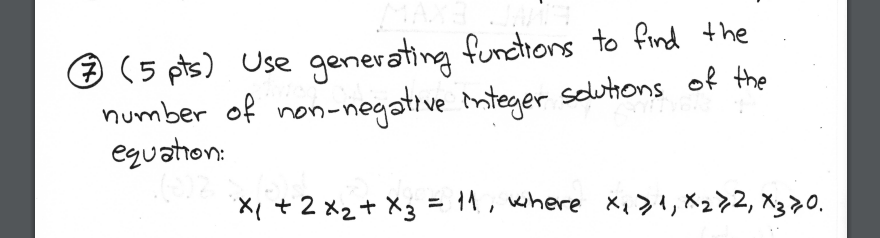 ⑦ (5 pts) Use generating functions to find the
number of non-negative integer solutions of the
equation:
x₁ + 2 x₂ + x₃ = 11, where x₁ ⩾ 1, x₂ ⩾ 2, x₃ ⩾ 0.